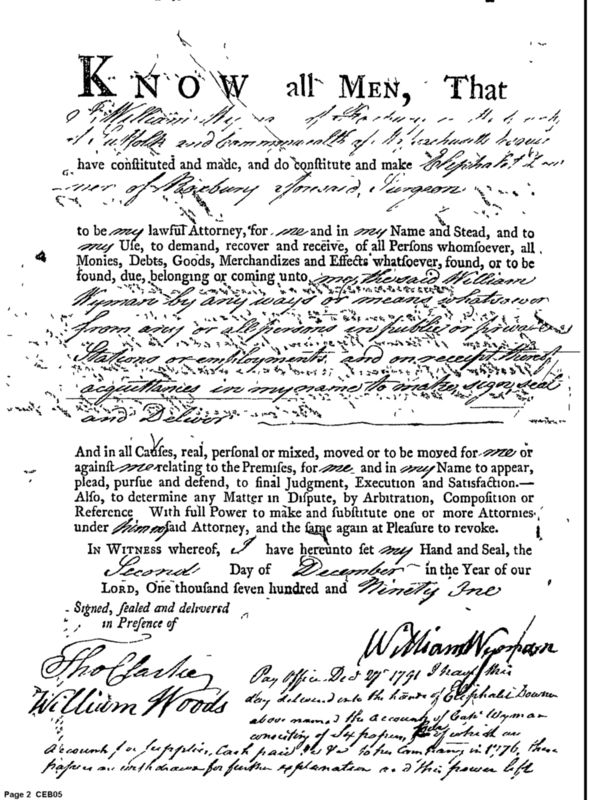 KNOW all MEN, That
I William Wyman of Roxbury in the County
of Suffolk and Commonwealth of Massachusetts
have conſtituted and made, and do conſtitute and make Eliphalet Dow
ner of Roxbury aforesaid, Surgeon
to be my lawful Attorney, for me and in my Name and Stead, and to
my Uſe, to demand, recover and receive, of all Perſons whomſoever, all
Monies, Debts, Goods, Merchandizes and Effects whatſoever, found, or to be
found, due, belonging or coming unto me, the said William
Wyman by any ways or means whatsoever
from any or all persons in public or private
Stations or employments and on receipt thereof
acquittances in my name to make, sign, seal
and Deliver
And in all Cauſes, real, perſonal or mixed, moved or to be moved for me or
againſt me relating to the Premiſes, for me and in my Name to appear,
plead, purſue and defend, to final Judgment, Execution and Satisfaction.—
Alſo, to determine any Matter in Diſpute, by Arbitration, Compoſition or
Reference With full Power to make and ſubſtitute one or more Attornies
under him my ſaid Attorney, and the ſame again at Pleaſure to revoke.
IN WITNESS whereof, I have hereunto ſet my Hand and Seal, the
Second Day of December in the Year of our
LORD, One thouſand ſeven hundred and Ninety One
Signed, ſealed and delivered
in Preſence of
William Wyman
Tho Clarke
William Woods
Pay Office Decr 27 1791 I have this
day delivered into the hands of Eliphalet Downer
above named the accounts of Capt Wyman
consisting of Six papers, of which are
accounts for Supplies, Cash paid &c &c to his Company in 1776, these
papers are withdrawn for further explanation and this power left
Page 2 CEB05